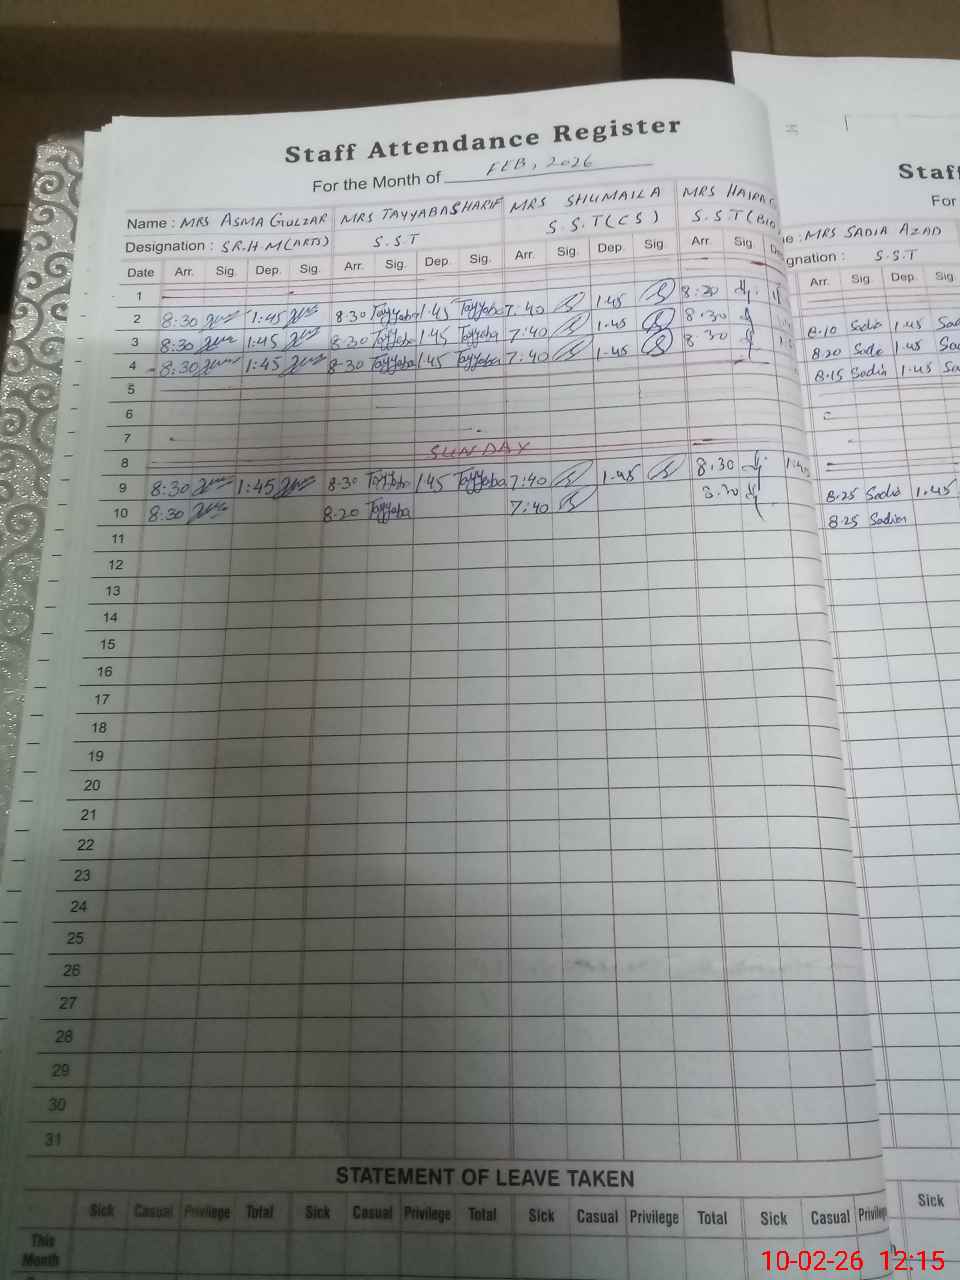 Staff Attendance Register
For the Month of FEB, 2026
Name : MRS ASMA GULZAR MRS TAYYABA SHARIF MRS SHUMAILA MRS
Designation : SR.H M(ARTS) S.S.T S.S.T(CS) S.S.T(BIO
Date Arr. Sig. Dep. Sig. Arr. Sig. Dep. Sig. Arr. Sig. Dep. Sig. Arr. Sig.
1
2 8:30 1:45 8:30 Tayyaba 1:45 Tayyaba 7:40 1:45 8:30
3 8:30 1:45 8:30 Tayyaba 1:45 Tayyaba 7:40 1:45 8:30
4 8:30 1:45 8:30 Tayyaba 1:45 Tayyaba 7:40 1:45 8:30
5
6
7
SUNDAY
8
9 8:30 1:45 8:30 Tayyaba 1:45 Tayyaba 7:40 1:45 8:30
10 8:30 8:20 Tayyaba 7:40
11
12
13
14
15
16
17
18
19
20
21
22
23
24
25
26
27
28
29
30
31
STATEMENT OF LEAVE TAKEN
Sick Casual Privilege Total Sick Casual Privilege Total Sick Casual Privilege Total Sick Casual Privileg
This
Month
Staf
For
MRS SADIA AZAD
gnation : S.S.T
Arr. Sig. Dep. Sig.
8:10 Sadia 1:45
8:20 Sadia 1:45
8:15 Sadia 1:45
8:25 Sadia 1:45
8:25 Sadia
Sick
10-02-26 12:15